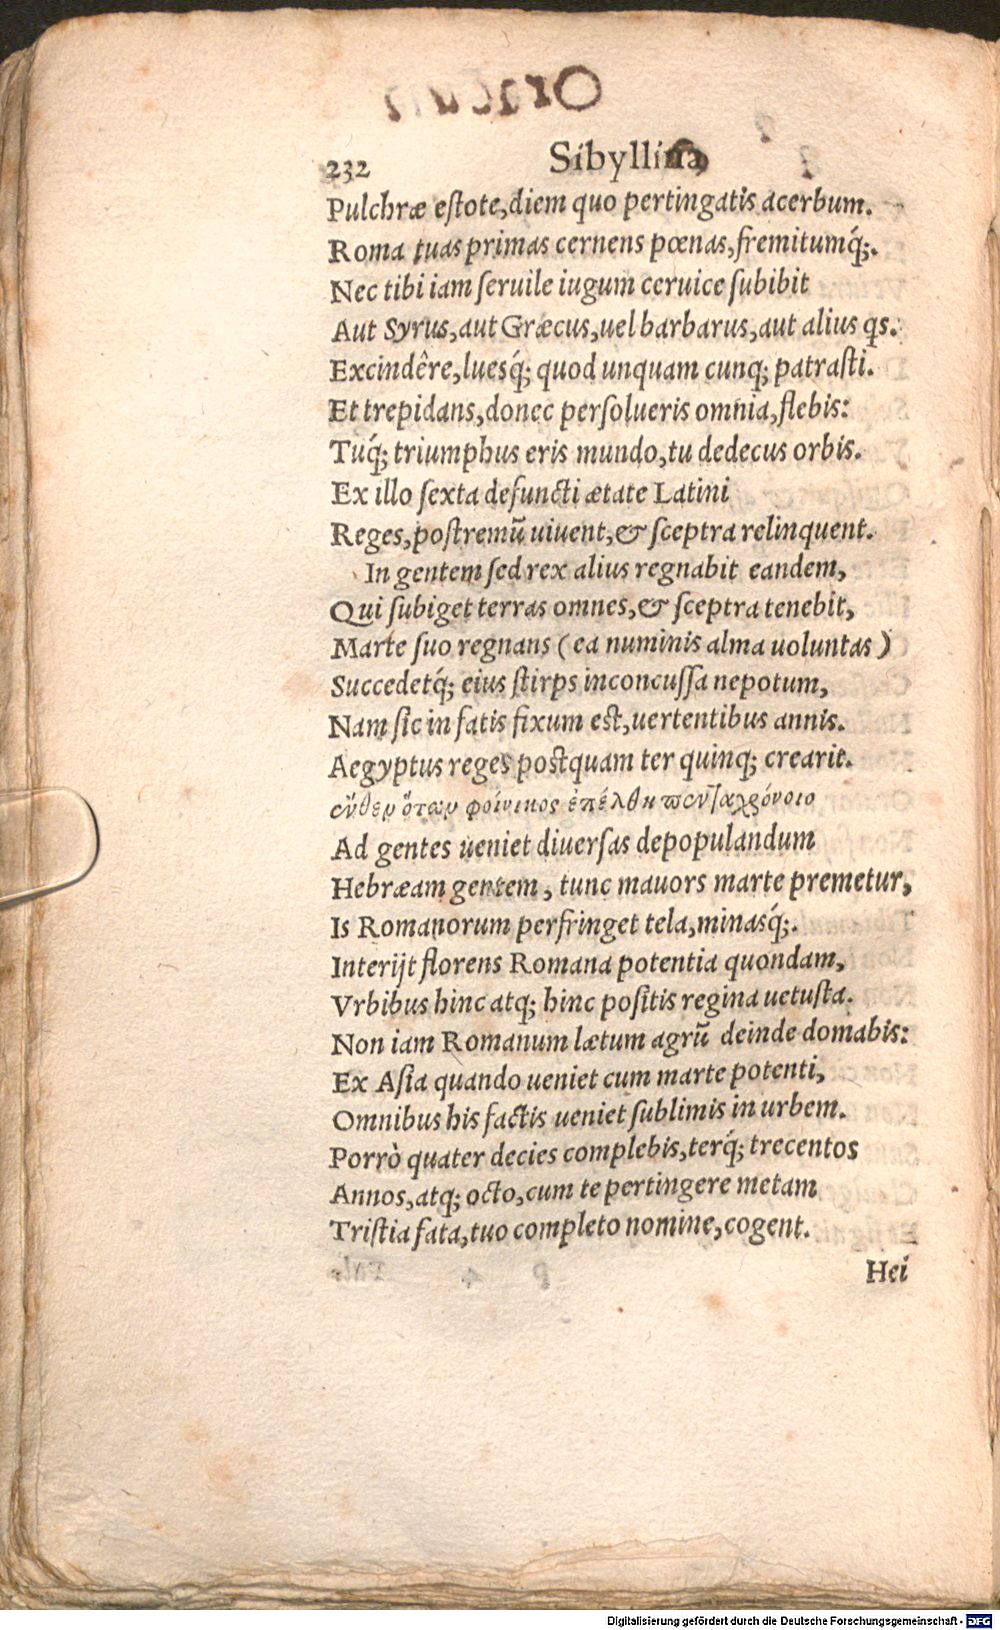 232 Sibyllina
Pulchræ eſtote,diem quo pertingatis acerbum.
Roma tuas primas cernens pœnas,fremitumq́;.
Nec tibi iam ſeruile iugum ceruice ſubibit
Aut Syrus,aut Græcus,uel barbarus,aut alius qs.
Excindêre,luesq́; quod unquam cunq; patraſti.
Et trepidans,donec perſolueris omnia,flebis:
Tuq́; triumphus eris mundo,tu dedecus orbis.
Ex illo ſexta defuncti ætate Latini
Reges,poſtremũ uiuent,& ſceptra relinquent.
In gentem ſed rex alius regnabit eandem,
Qui ſubiget terras omnes,& ſceptra tenebit,
Marte ſuo regnans ( ea numinis alma uoluntas )
Succedetq́; eius ſtirps inconcuſſa nepotum,
Nam ſic in fatis fixum eſt,uertentibus annis.
Aegyptus reges poſtquam ter quinq; crearit.
ὅταρ φοίνικος ἐπέλθη
Ad gentes ueniet diuerſas depopulandum
Hebræam gentem, tunc mauors marte premetur,
Is Romanorum perfringet tela,minasq́;.
Interijt florens Romana potentia quondam,
Vrbibus hinc atq; hinc poſitis regina uetuſta.
Non iam Romanum lætum agrũ deinde domabis:
Ex Aſia quando ueniet cum marte potenti,
Omnibus his factis ueniet ſublimis in urbem.
Porrò quater decies complebis,terq́; trecentos
Annos,atq; octo,cum te pertingere metam
Triſtia fata,tuo completo nomine,cogent.
Hei
Digitalisierung gefördert durch die Deutsche Forschungsgemeinschaft - DFG